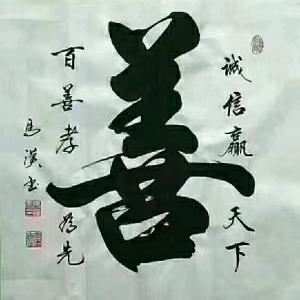 诚信赢天下
善
百善孝为先
马汉书